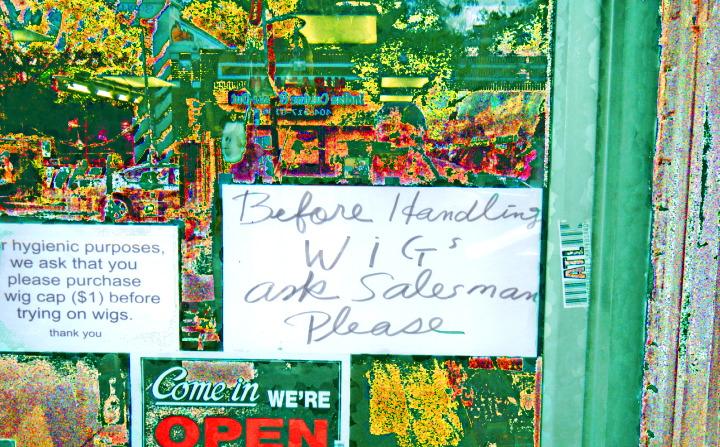 Before Handling
WIGs
ask Salesman
Please
r hygienic purposes,
we ask that you
please purchase
wig cap ($1) before
trying on wigs.
thank you
Come in WE'RE
OPEN
ATL